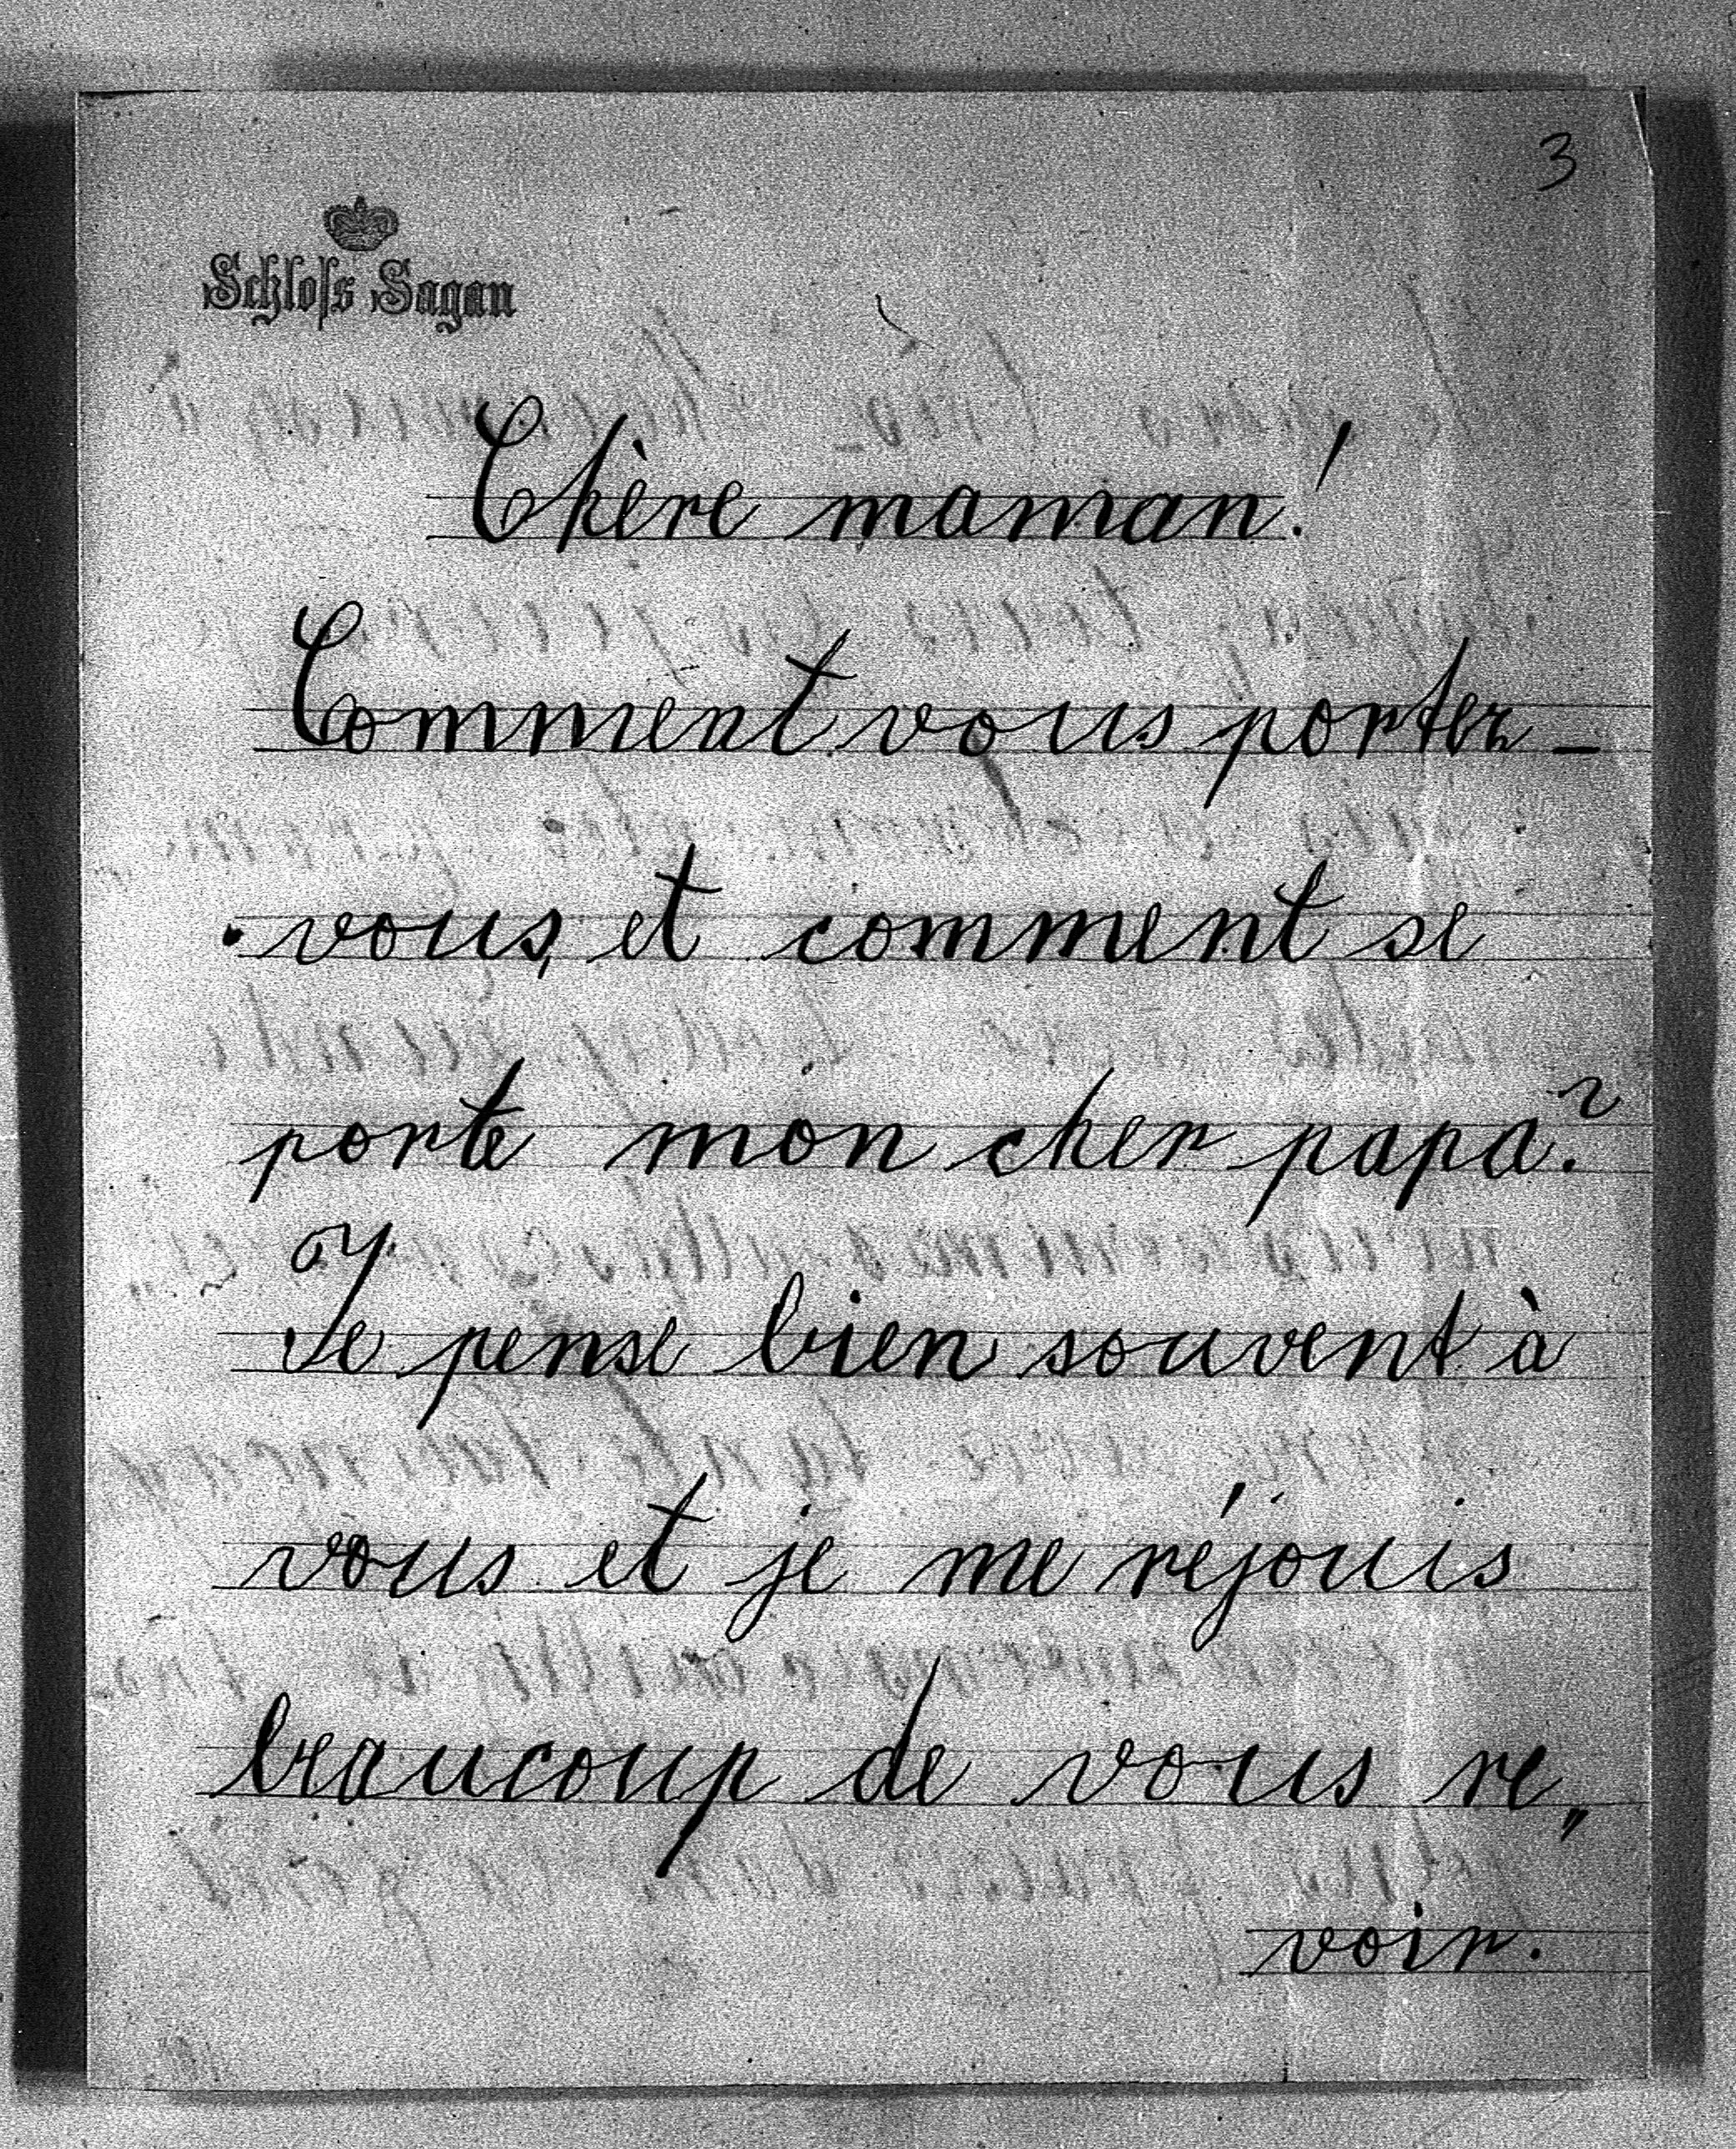 3
Schloſs Sagan
Chère maman!
Comment vous porter-
vous, et comment se
porte mon cher papa?
Je pense bien souvent à
vous et je me réjouis
beaucoup de vous re„
voir.